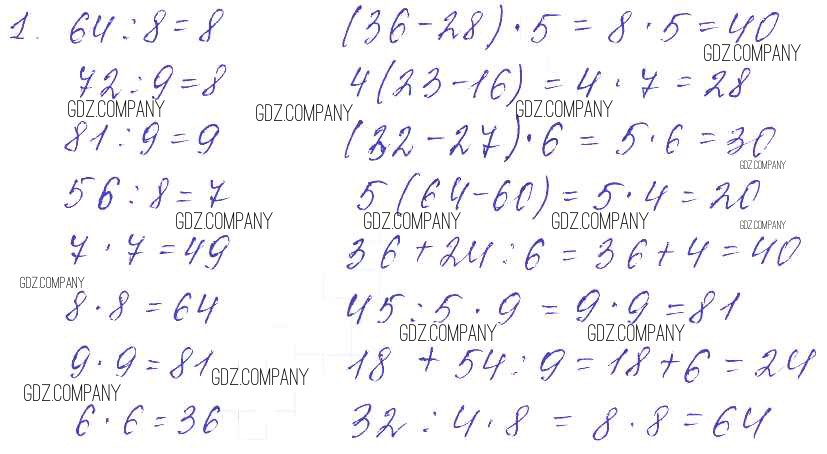 1. 64 : 8 = 8 (36 - 28) · 5 = 8 · 5 = 40
GDZ.COMPANY
72 : 9 = 8 4(23 - 16) = 4 · 7 = 28
GDZ.COMPANY GDZ.COMPANY GDZ.COMPANY
81 : 9 = 9 (32 - 27) · 6 = 5 · 6 = 30
GDZ.COMPANY
56 : 8 = 7 5(64 - 60) = 5 · 4 = 20
GDZ.COMPANY GDZ.COMPANY GDZ.COMPANY GDZ.COMPANY
7 · 7 = 49 36 + 24 : 6 = 36 + 4 = 40
GDZ.COMPANY
8 · 8 = 64 45 : 5 · 9 = 9 · 9 = 81
GDZ.COMPANY GDZ.COMPANY
9 · 9 = 81 18 + 54 : 9 = 18 + 6 = 24
GDZ.COMPANY GDZ.COMPANY
6 · 6 = 36 32 : 4 · 8 = 8 · 8 = 64